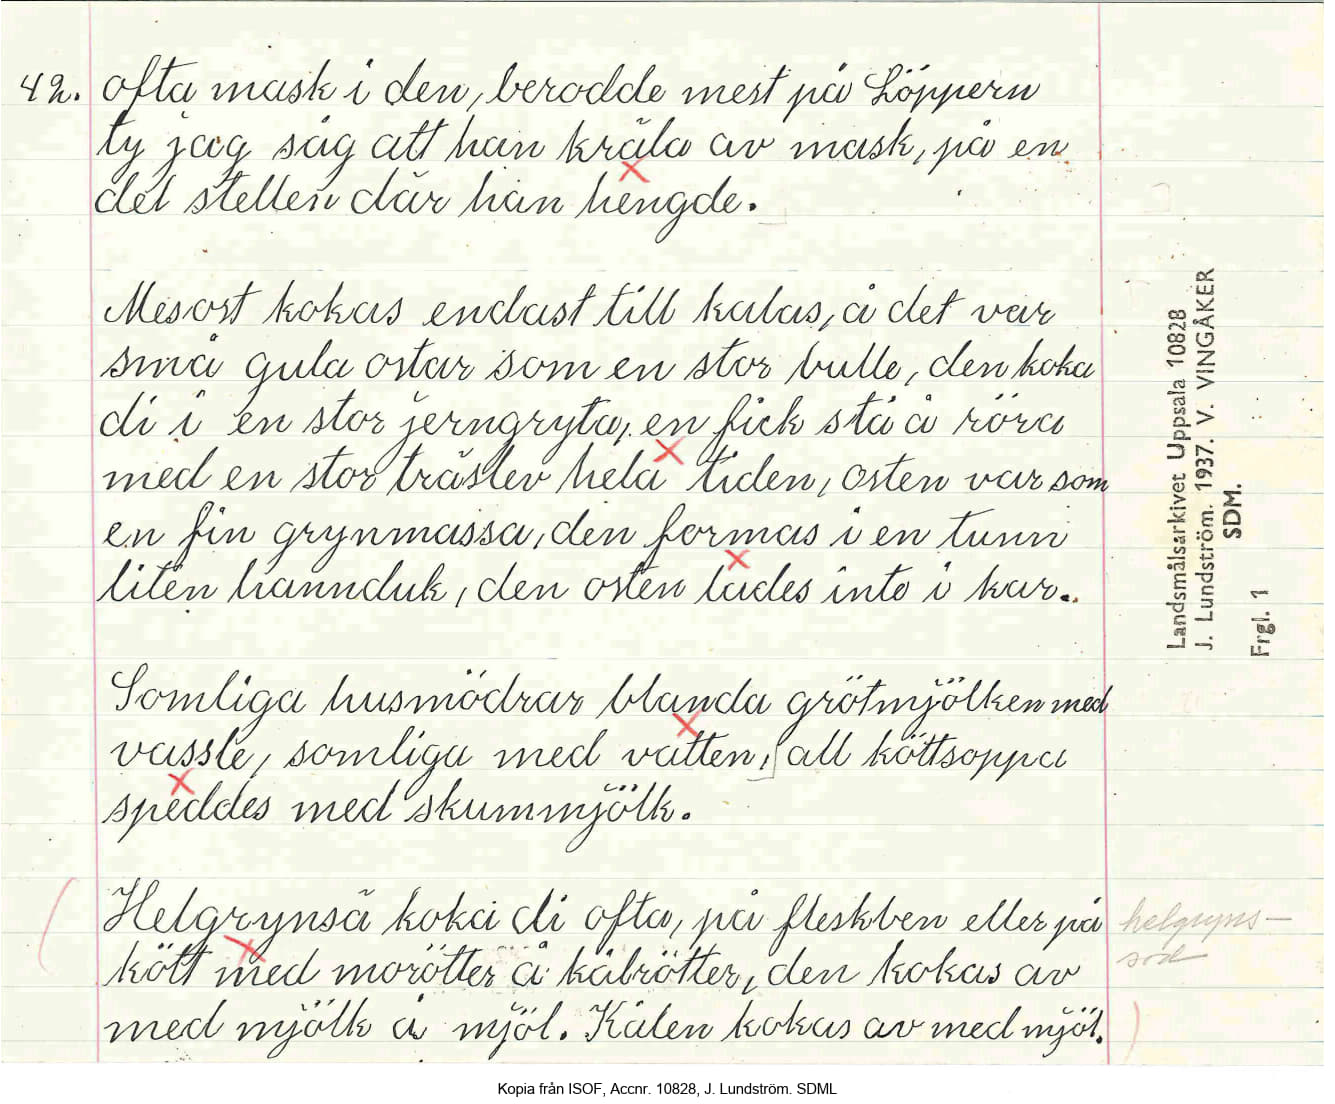 42. ofta mask i den, berodde mest på Löppern
ty jag såg att han kräla av mask, på en
del stellen där han hengde.
Mesost kokas endast till kalas, å det var
små gula ostar som en stor bulle, den koka
di i en stor jerngryta, en fick stå å röra
med en stor träslev hela tiden, osten var som
en fin grynmassa, den formas i en tunn
liten hannduk, den osten lades inte i kar.
Somliga husmödrar blanda grötmjölken med
vassle, somliga med vatten, all köttsoppa
speddes med skummjölk.
Helgrynså koka di ofta, på fleskben eller på
kött med morötter å kålrötter, den kokas av
med mjölk å mjöl. Kålen kokas av med mjöl.
helgryns-
sod
Landsmålsarkivet Uppsala 10828
J. Lundström. 1937. V. VINGÅKER
SDM.
Frgl. 1
Kopia från ISOF, Accnr. 10828, J. Lundström. SDML